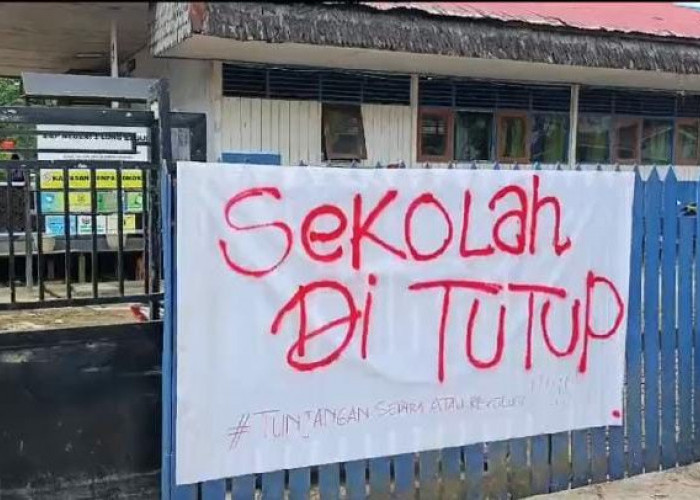 SeKOLah
Di TUTUP
#TUNJANGAN SETARA ATAU REVOLUSI
KAWASAN TANPA ROKOK